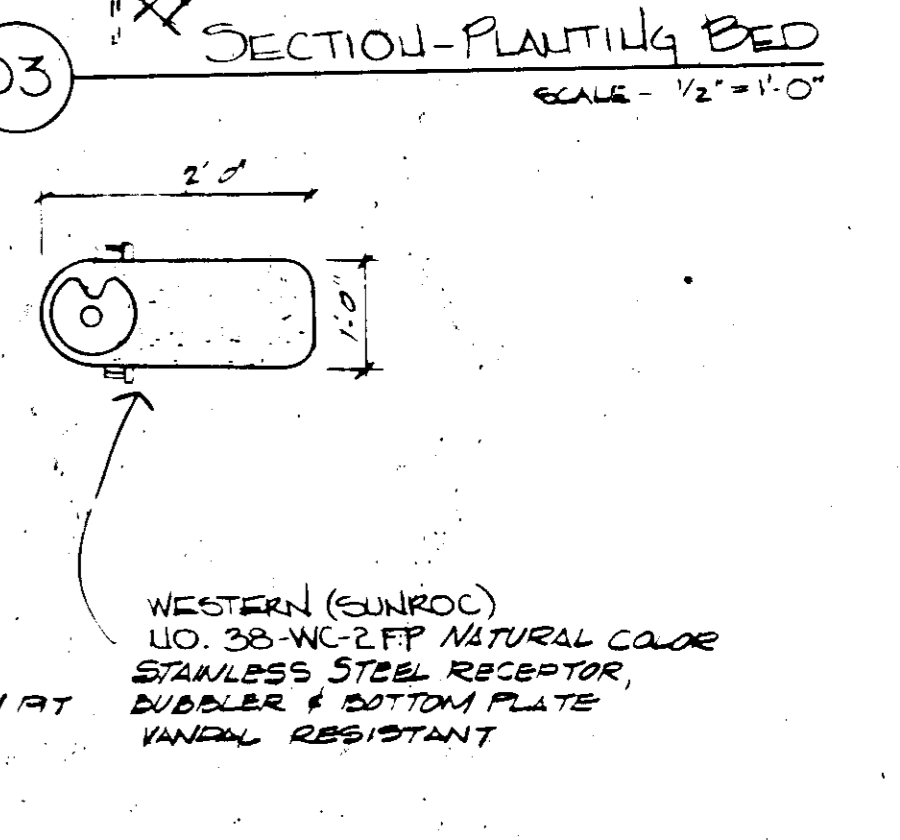 03
SECTION-PLANTING BED
SCALE - 1/2" = 1'-0"
2' 0"
1'-0"
WESTERN (SUNROC)
NO. 38-WC-2FP NATURAL COLOR
STAINLESS STEEL RECEPTOR,
BUBBLER & BOTTOM PLATE
VANDAL RESISTANT